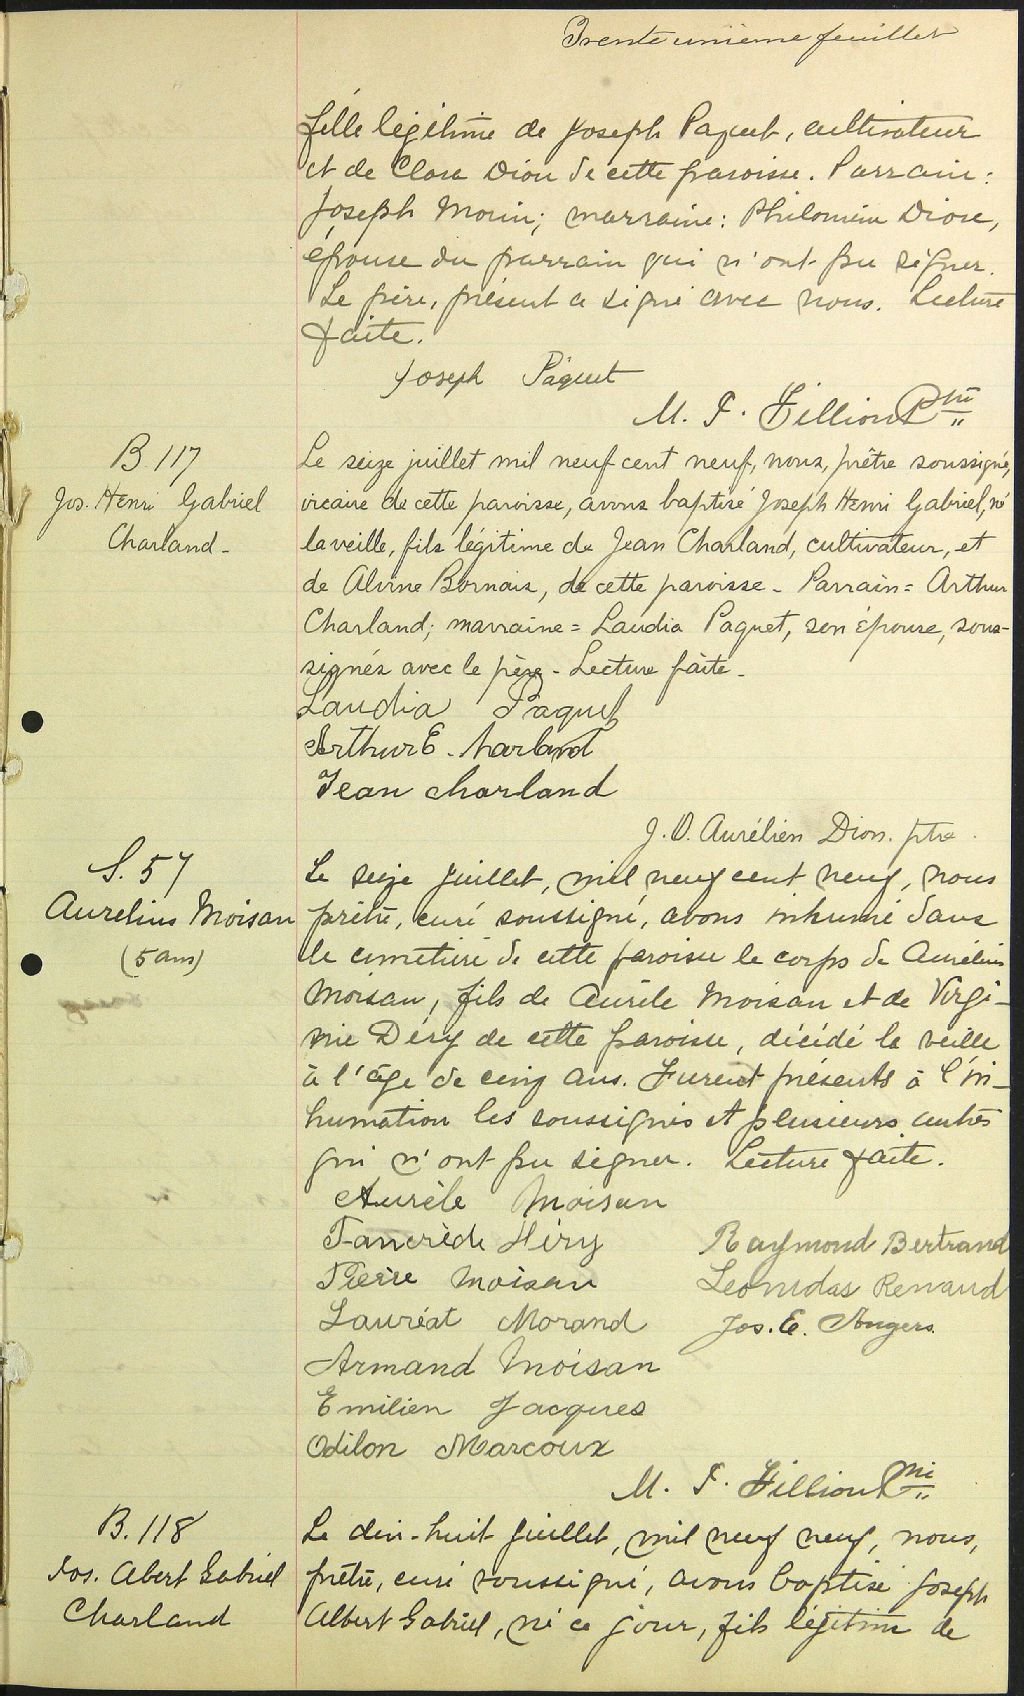 Trente unième feuillet
fille légitime de Joseph Paquet, cultivateur
et de Clara Dion de cette paroisse. Parrain:
Joseph Morin; marraine: Philomène Dion,
épouse du parrain qui n'ont pu signer.
Le père, présent a signé avec nous. Lecture
faite.
Joseph Paquet
M. F. Fillion Ptre
B. 117
Jos. Henri Gabriel
Charland -
Le seize juillet mil neuf cent neuf, nous, prêtre soussigné,
vicaire de cette paroisse, avons baptisé Joseph Henri Gabriel, né
la veille, fils légitime de Jean Charland, cultivateur, et
de Alvine Bornais, de cette paroisse - Parrain = Arthur
Charland; marraine = Laudia Paquet, son épouse, sous-
signés avec le père - Lecture faite -
Laudia Paquet
Arthur E. Charland
Jean Charland
J. O. Aurélien Dion. ptre.
S. 57
Aurelius Moisan
(5 ans)
Le seize juillet, mil neuf cent neuf, nous
prêtre, curé soussigné, avons inhumé dans
le cimetière de cette paroisse le corps de Aurélius
Moisan, fils de Aurèle Moisan et de Virgi-
nie Déry de cette paroisse, décédé la veille
à l'âge de cinq ans. Furent présents à l'in-
humation les soussignés et plusieurs autres
qui n'ont pu signer. Lecture faite.
Aurèle Moisan
Tancrède Déry Raymond Bertrand
Pierre Moisan Leonidas Renaud
Lauréat Morand Jos. E. Angers
Armand Moisan
Emilien Jacques
Odilon Marcoux
M. F. Fillion Ptre
B. 118
Jos. Abert Gabriel
Charland
Le dix-huit juillet, mil neuf neuf, nous,
prêtre, curé soussigné, avons baptisé Joseph
Albert Gabriel, né ce jour, fils légitime de